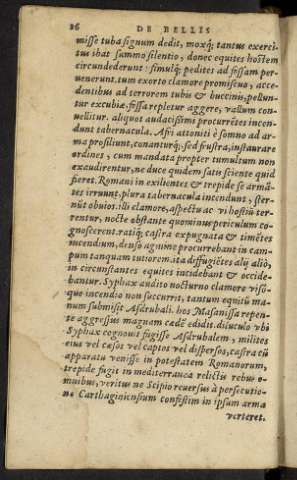 26 DE BELLIS
misse tuba signum dedit, moxq́; tantus exerci-
tus ibat summo silentio, donec equites hostem
circundederunt: simulq́; pedites ad fossam per-
uenerunt. tum exorto clamore promiscuo, acce-
dentibus ad terrorem tubis & buccinis, pellun-
tur excubiæ. fossa repletur aggere, vallum con-
uellitur. aliquot audacissimi procurrētes incen-
dunt tabernacula. Afri attoniti è somno ad ar-
ma prosiliunt, conanturq́; sed frustra, instaurare
ordines, cum mandata propter tumultum non
exaudirentur, ne duce quidem satis sciente quid
fieret. Romani in exilientes & trepide se armā-
tes irruunt, plura tabernacula incendunt, ster-
nūt obuios. illi clamore, aspectu ac vi hostiū ter-
rentur, nocte obstante quominus periculum co-
gnoscerent. ratiq́; castra expugnata & timētes
incendium, denso agmine procurrebant in cam-
pum tanquam tutiorem. ita diffugiētes alij aliò,
in circunstantes equites incidebant & occide-
bantur. Syphax audito nocturno clamore visó-
que incendio non succurrit, tantum equitū ma-
num submisit Asdrubali. hos Masanissa repen-
te aggressus magnam cædē edidit. diluculo vbi
Syphax cognouit fugisse Asdrubalem, milites
eius vel cæsos vel captos vel dispersos, castra cū
apparatu venisse in potestatem Romanorum,
trepide fugit in mediterranea relictis rebus o-
mnibus, veritus ne Scipio reuersus à persecutio-
ne Carthaginiensium confestim in ipsum arma
verteret.